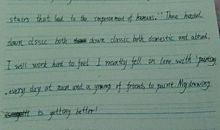 stairs that lead to the improvement of humans." These handed
down classic both down classic both domestic and abroad,
I will work hard to feel I mostly fell in love with painting
every day at noon and a young of friends to paint My drawing
is getting better!